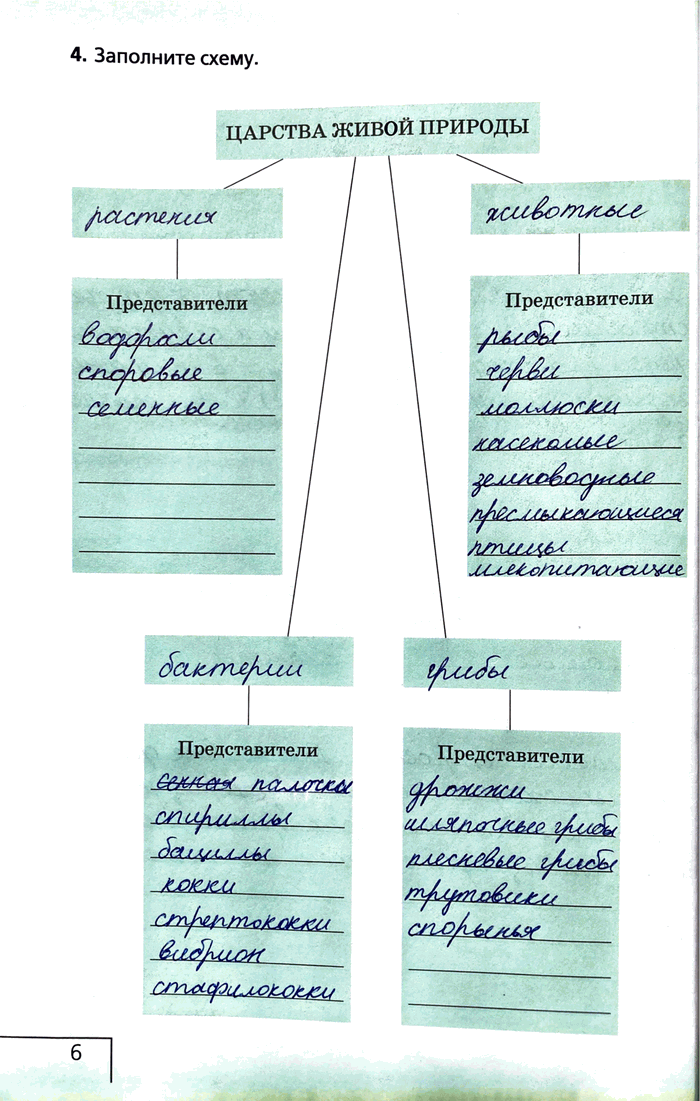 4. Заполните схему.
ЦАРСТВА ЖИВОЙ ПРИРОДЫ
растения
животные
Представители
водоросли
споровые
семенные
Представители
рыбы
черви
моллюски
насекомые
земноводные
пресмыкающиеся
птицы
млекопитающие
бактерии
грибы
Представители
сенная палочка
спириллы
бациллы
кокки
стрептококки
вибрион
стафилококки
Представители
дрожжи
шляпочные грибы
плесневые грибы
трутовики
спорынья
6